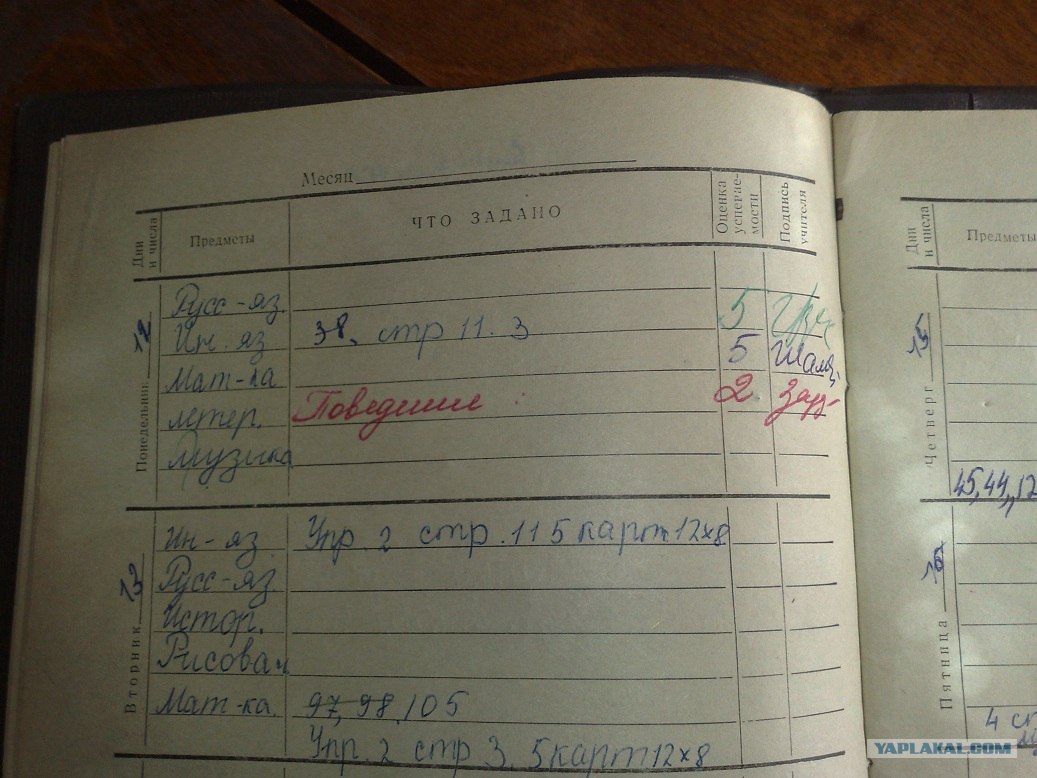 Месяц
Дни и числа Предметы ЧТО ЗАДАНО Оценка успевае-мости Подпись учителя
Понедельник 12
Русс-яз. 5
Ин. яз 38, стр 11. 3 5
Мат-ка
литер. Поведение 2
Музыка
Вторник 13
Ин-яз. Упр. 2 стр. 11 5 карт 12х8
Русс-яз.
Истор.
Рисован
Мат-ка. 97, 98, 105
Упр. 2 стр 3. 5 карт 12х8
Дни и числа Предметы
Четверг 15
45, 44, 12
Пятница 16
4 ст
YAPLAKAL.COM